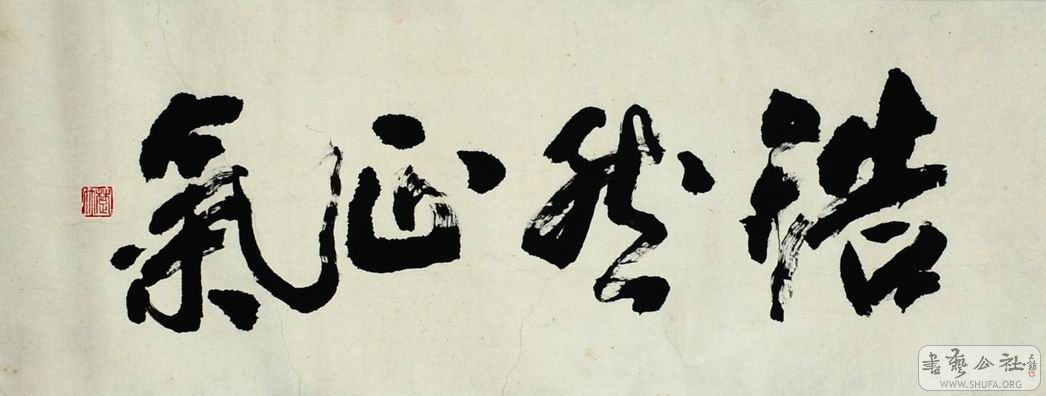 浩然正氣
書藝公社
WWW.SHUFA.ORG